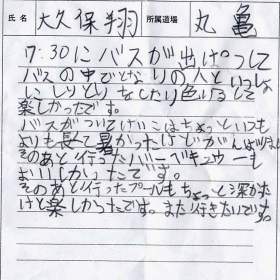 氏名 大久保翔 所属道場 丸亀
7:30にバスが出ぱつして
バスの中でとなりの人といっしょ
にしりとりをしたり色いろして
楽しかったです。
バスがついてけいこはちょっといつも
よりも長くて暑かったけどがんばりました
そのあと行ったバーベキューも
おいしかったです。
そのあと行ったプールもちょっと深かった
けど楽しかったです。また行きたいです。